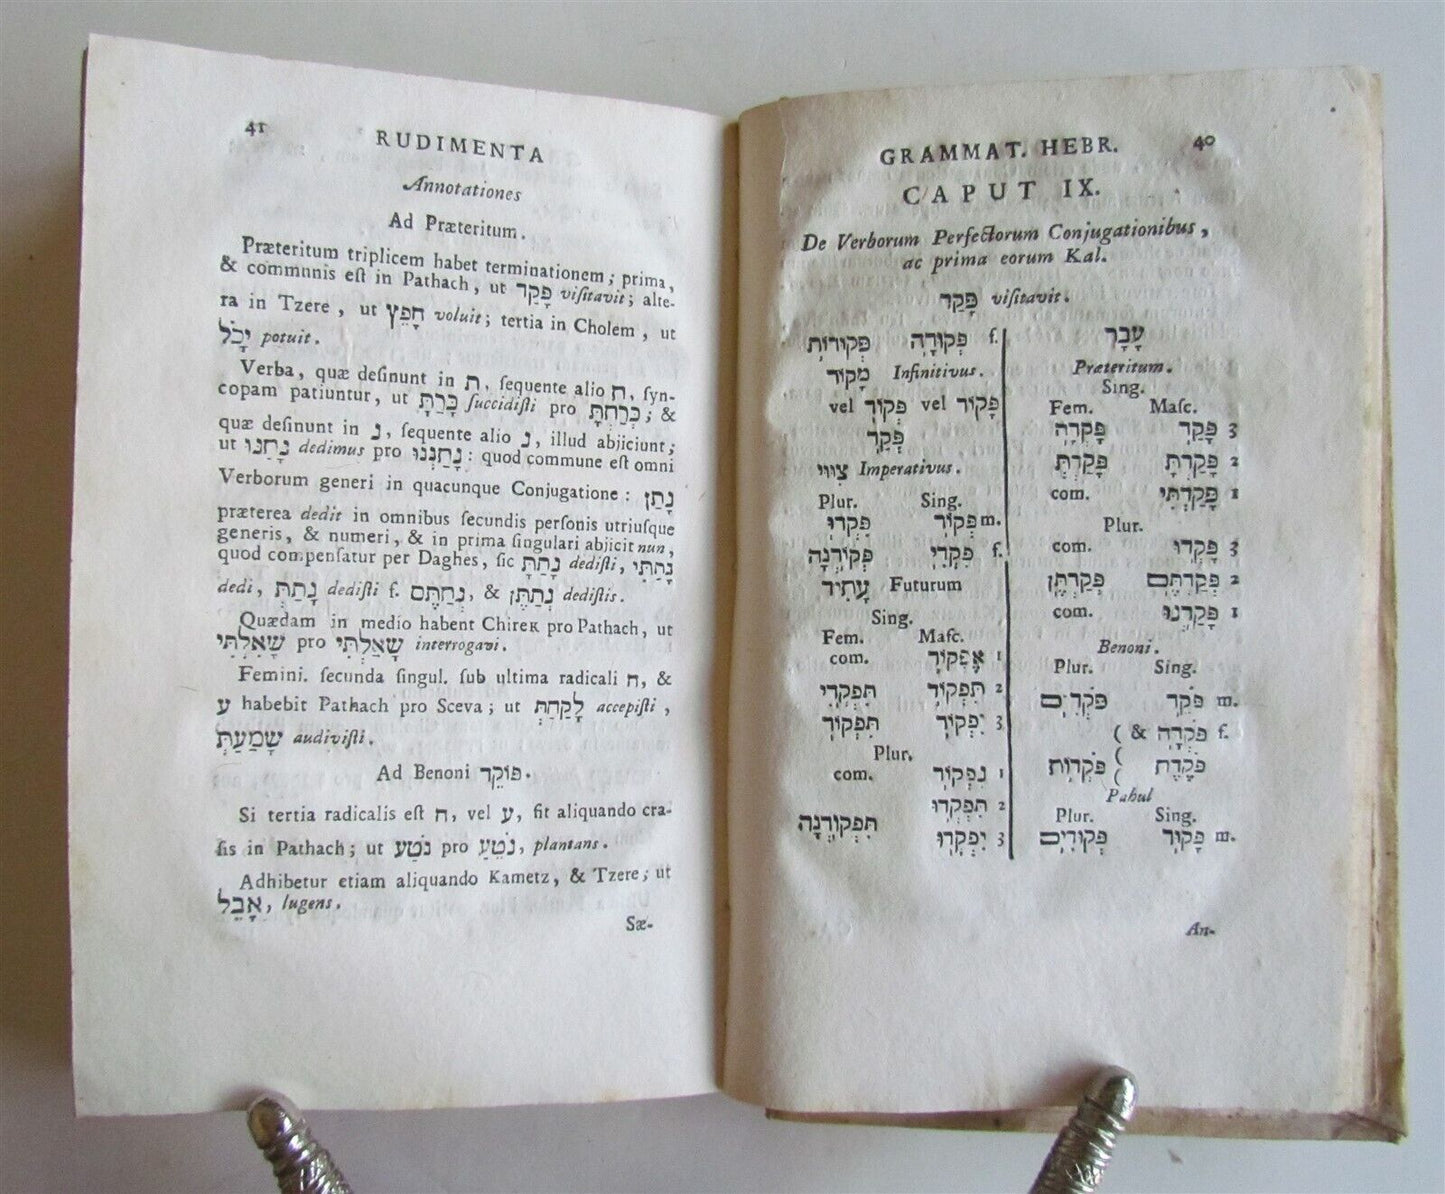 GRAMMAT. HEBR. 40
CAPUT IX.
De Verborum Perfectorum Conjugationibus,
ac prima eorum Kal.
פָּקַד visitavit.
עָבָר
Præteritum.
Sing.
Fem. Masc.
פָּקְדָה פָּקַד 3
פָּקַדְתְּ פָּקַדְתָּ 2
com. פָּקַדְתִּי 1
Plur.
com. פָּקְדוּ 3
פְּקַדְתֶּן פְּקַדְתֶּם 2
com. פָּקַדְנוּ 1
Benoni.
Plur. Sing.
פֹּקְדִים פֹּקֵד m.
( & פֹּקְדָה f.
פֹּקְדוֹת ( פֹּקֶדֶת
Pahul
Plur. Sing.
פְּקוּדִים פָּקוּד m.
פְּקוּדוֹת פְּקוּדָה f.
מָקוֹר Infinitivus.
vel פְּקוֹד vel פָּקוֹד
צִוּוּי Imperativus.
Plur. Sing.
פִּקְדוּ פְּקוֹד m.
פְּקוֹדְנָה פִּקְדִי f.
עָתִיד Futurum
Sing.
Fem. Masc.
com. אֶפְקוֹד 1
תִּפְקְדִי תִּפְקוֹד 2
תִּפְקוֹד יִפְקוֹד 3
Plur.
com. נִפְקוֹד 1
תִּפְקְדוּ 2
תִּפְקוֹדְנָה
יִפְקְדוּ 3
An-
41 RUDIMENTA
Annotationes
Ad Præteritum.
Præteritum triplicem habet terminationem; prima,
& communis est in Pathach, ut פָּקַד visitavit; alte-
ra in Tzere, ut חָפֵץ voluit; tertia in Cholem, ut
יָכֹל potuit.
Verba, quæ desinunt in ת, sequente alio ת, syn-
copam patiuntur, ut כָּרַתָּ succidisti pro כָּרַתְתָּ; &
quæ desinunt in נ, sequente alio נ, illud abjiciunt;
ut נָתַנוּ dedimus pro נָתַנְנוּ: quod commune est omni
Verborum generi in quacunque Conjugatione: נָתַן
præterea dedit in omnibus secundis personis utriusque
generis, & numeri, & in prima singulari abjicit nun,
quod compensatur per Daghes, sic נָתַתָּ dedisti, נָתַתִּי
dedi, נָתַתְּ dedisti f. נְתַתֶּם, & נְתַתֶּן dedistis.
Quædam in medio habent Chirek pro Pathach, ut
שָׁאִלְתִּי pro שָׁאַלְתִּי interrogavi.
Femini. secunda singul. sub ultima radicali ח, &
ע habebit Pathach pro Sceva; ut לָקַחַתְּ accepisti,
שָׁמַעַתְּ audivisti.
Ad Benoni פּוֹקֵד.
Si tertia radicalis est ח, vel ע, fit aliquando cra-
sis in Pathach; ut נֹטַע pro נֹטֵעַ, plantans.
Adhibetur etiam aliquando Kametz, & Tzere; ut
אָבֵל, lugens.
Sæ-